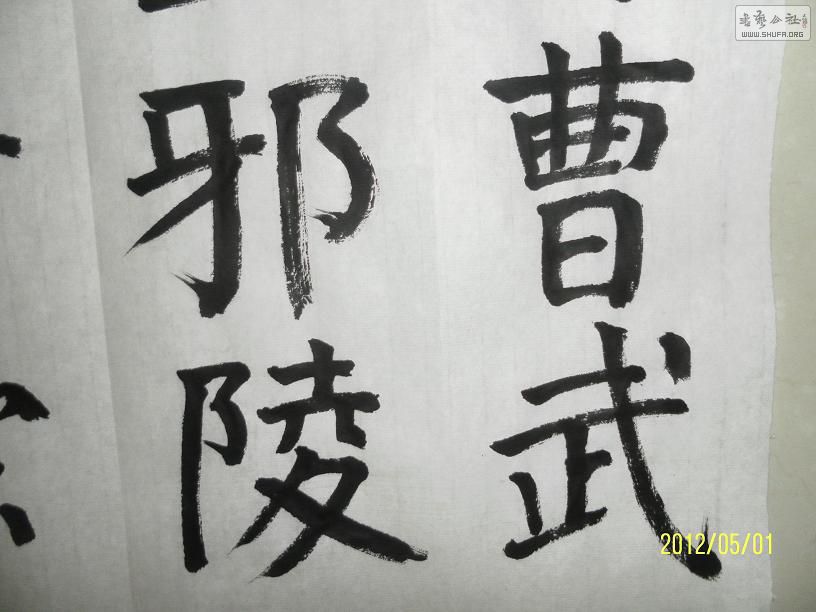 曹武
邪陵
书艺公社
WWW.SHUFA.ORG
2012/05/01